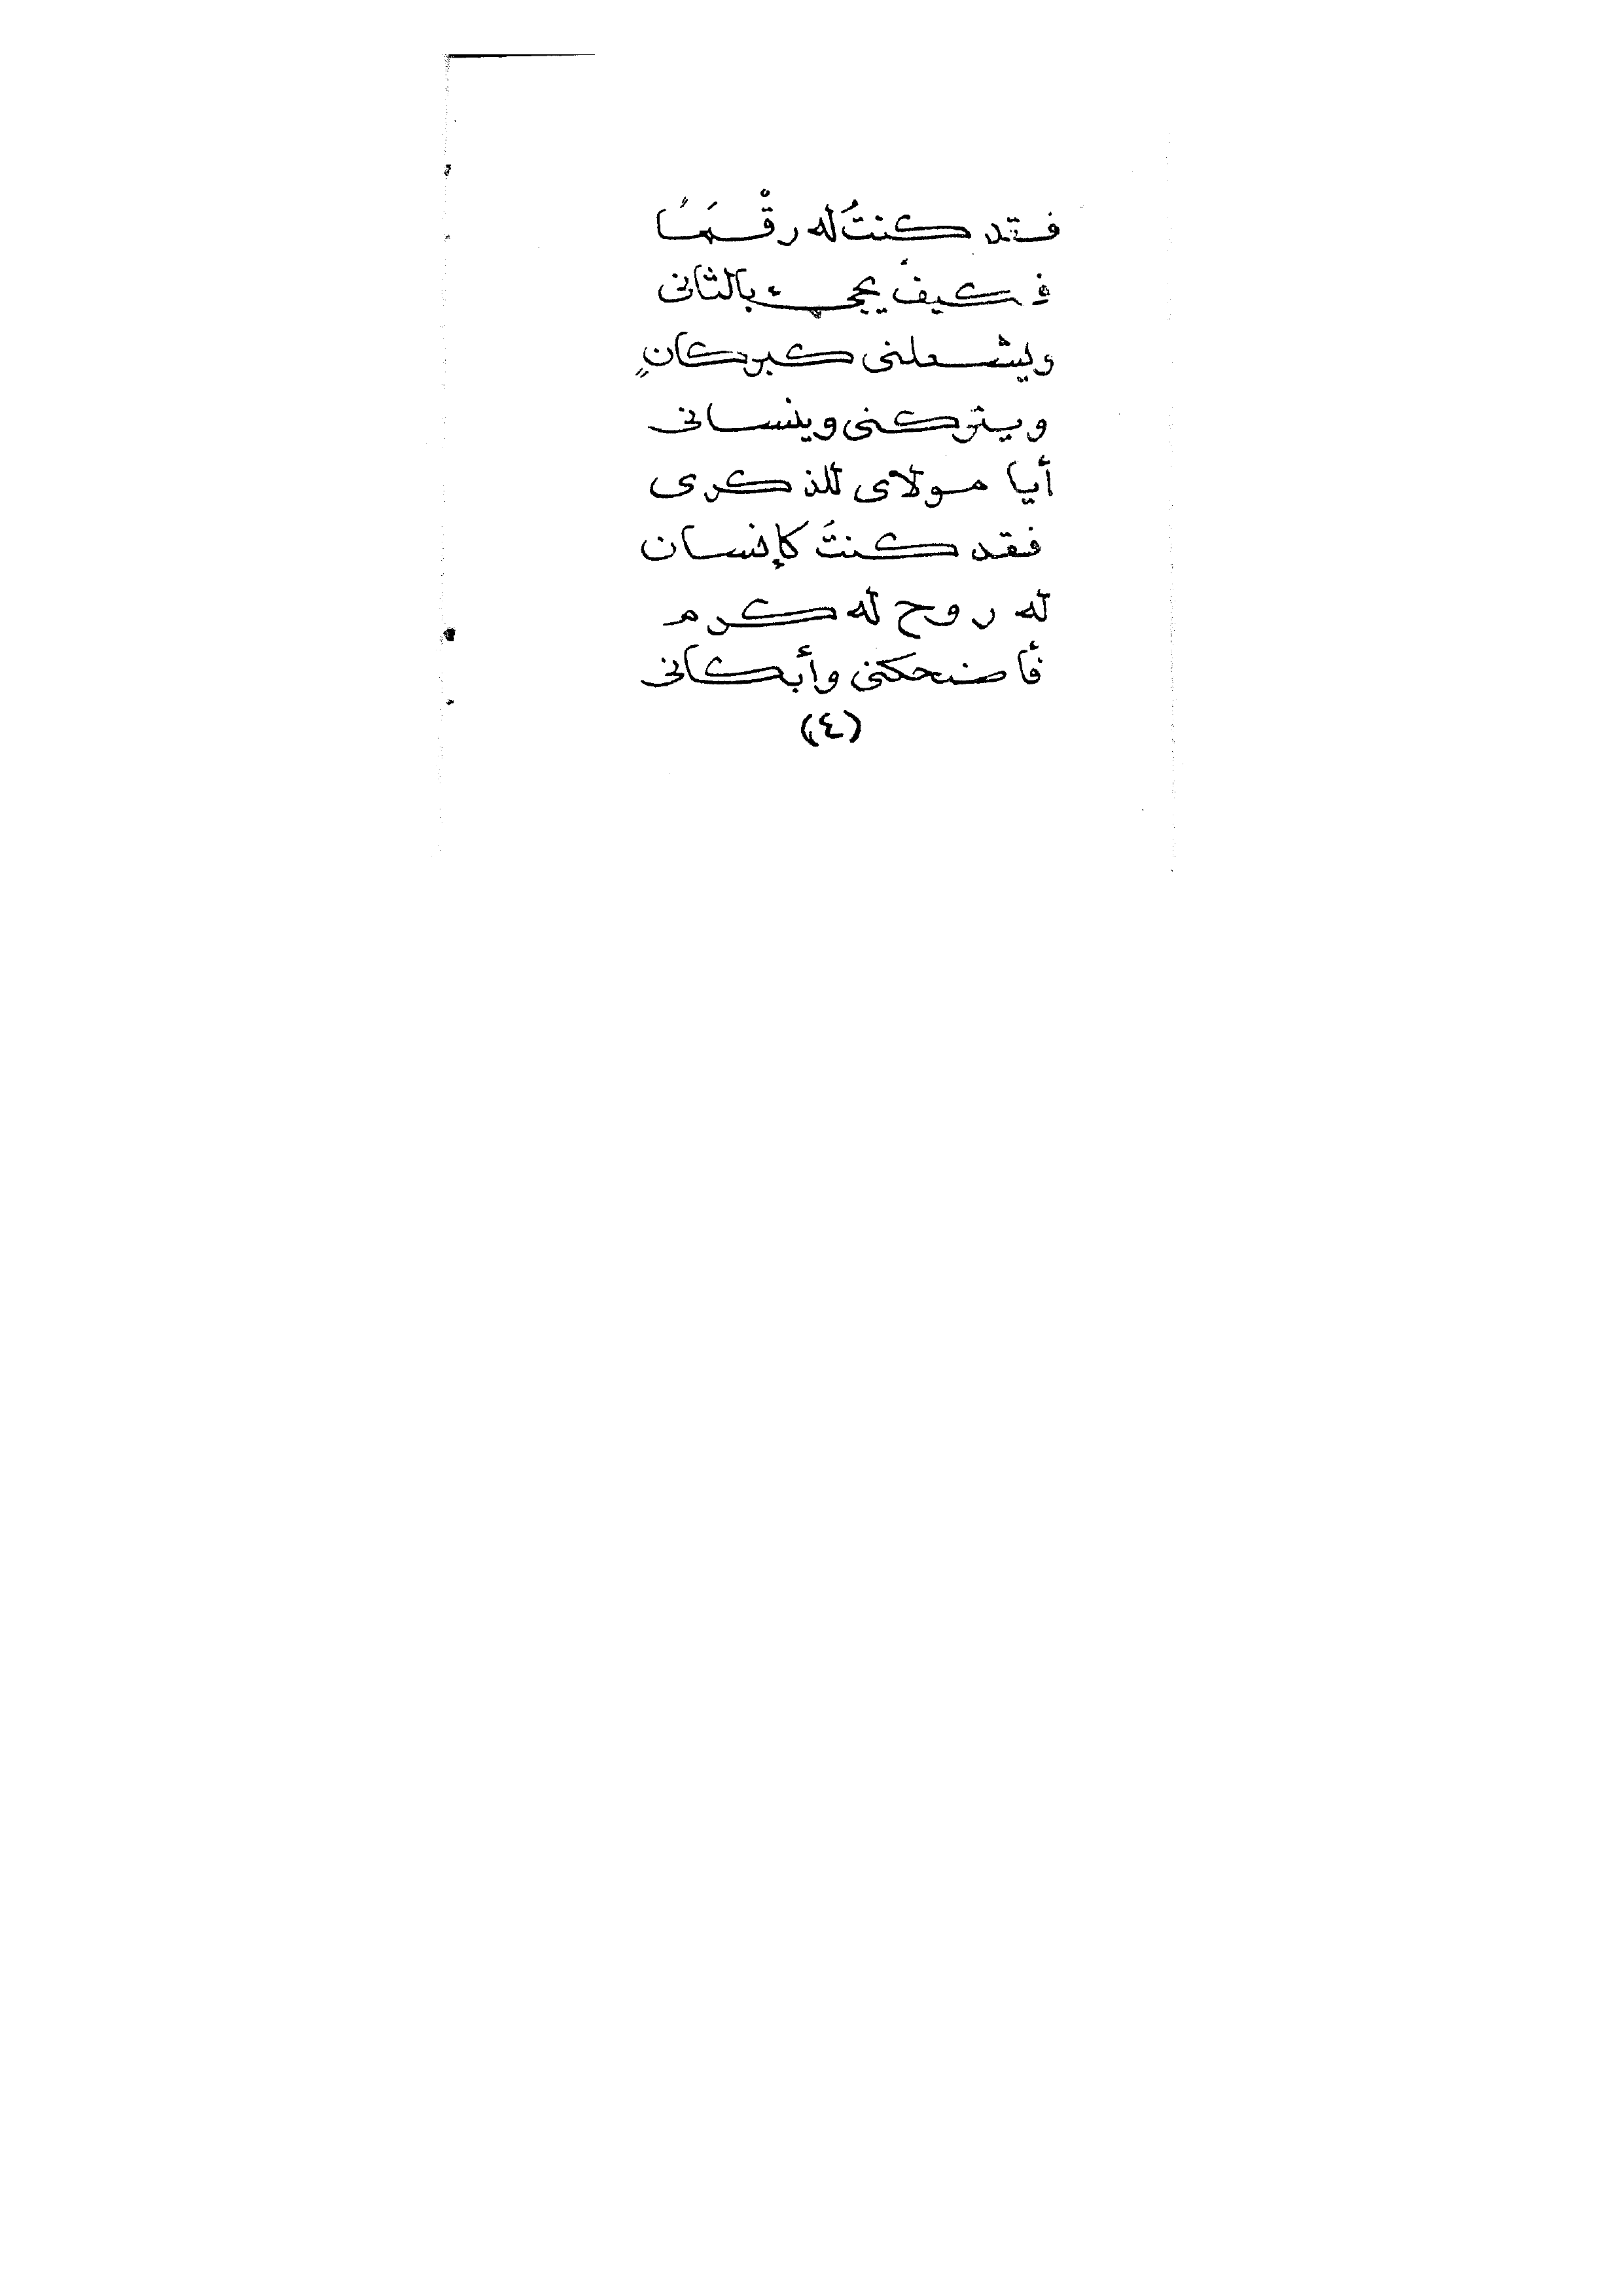 فقد كنتُ له رقْمَاً
فكيفَ يجىء بالثانى
ويشعلنى كبركانٍ
ويتركنى وينسانى
أيا مولاى للذكرى
فقد كنتَ كإنسان
له روح له كرم
فأضحكنى وأبكانى
(٤)